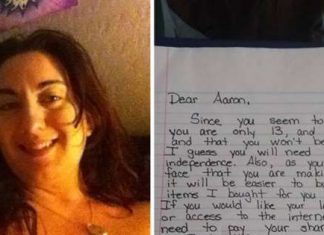 Dear Aaron,
Since you seem to
you are only 13, and
and that you won't be
I guess you will need
independence. Also, as you
face that you are maki
it will be easier to bu
items I bought for you
If you would like your l
or access to the intern
need to pay your shar